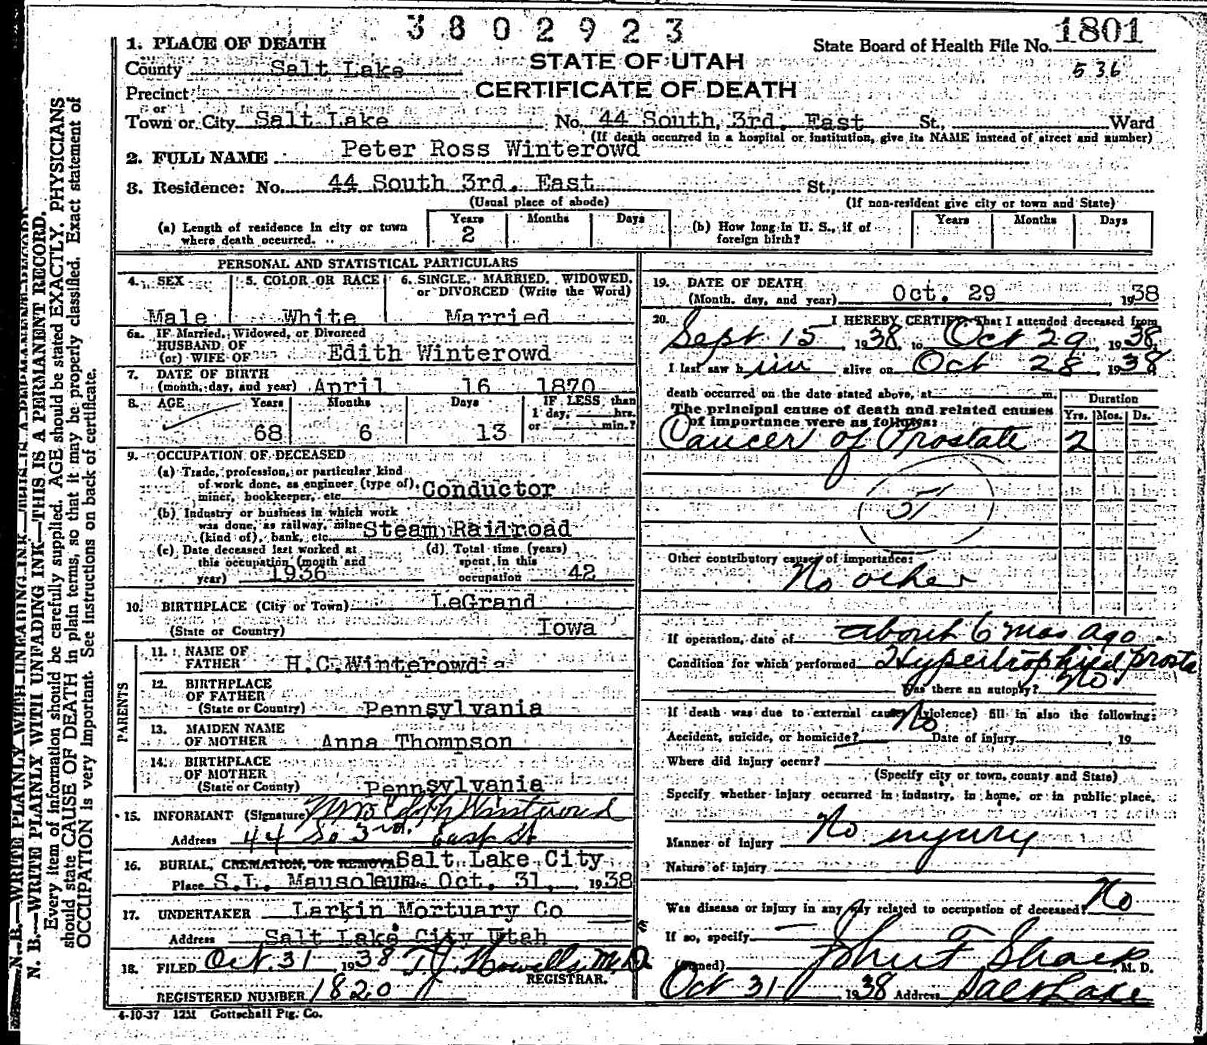 3802923
1801
State Board of Health File No.
536
STATE OF UTAH
CERTIFICATE OF DEATH
1. PLACE OF DEATH
County Salt Lake
Precinct
or
Town or City Salt Lake No. 44 South, 3rd. East St., Ward
(If death occurred in a hospital or institution, give its NAME instead of street and number)
2. FULL NAME Peter Ross Winterowd
3. Residence: No. 44 South 3rd. East St.,
(Usual place of abode) (If non-resident give city or town and State)
(a) Length of residence in city or town where death occurred. Years 2 Months Days
(b) How long in U. S., if of foreign birth? Years Months Days
PERSONAL AND STATISTICAL PARTICULARS
4. SEX Male
5. COLOR OR RACE White
6. SINGLE, MARRIED, WIDOWED, or DIVORCED (Write the Word) Married
6a. IF Married, Widowed, or Divorced
HUSBAND OF
(or) WIFE OF Edith Winterowd
7. DATE OF BIRTH
(month, day, and year) April 16 1870
8. AGE Years 68 Months 6 Days 13 IF LESS than 1 day, hrs. or min.?
9. OCCUPATION OF DECEASED
(a) Trade, profession, or particular kind
of work done, as engineer (type of),
miner, bookkeeper, etc. Conductor
(b) Industry or business in which work
was done, as railway, mine
(kind of), bank, etc. Steam Railroad
(c) Date deceased last worked at
this occupation (month and
year) 1936
(d) Total time (years)
spent in this
occupation 42
10. BIRTHPLACE (City or Town) LeGrand
(State or Country) Iowa
PARENTS
11. NAME OF
FATHER H.C. Winterowd
12. BIRTHPLACE
OF FATHER
(State or Country) Pennsylvania
13. MAIDEN NAME
OF MOTHER Anna Thompson
14. BIRTHPLACE
OF MOTHER
(State or Country) Pennsylvania
15. INFORMANT (Signature) Mrs Edith Winterowd
Address 44 So 3rd. East St
16. BURIAL, CREMATION, OR REMOVAL Salt Lake City
Place S.L. Mausoleum. Oct. 31, 1938
17. UNDERTAKER Larkin Mortuary Co
Address Salt Lake City Utah
18. FILED Oct. 31 1938 T.J. Howells M.D.
REGISTRAR.
REGISTERED NUMBER 1820
4-10-37 12M Gottschall Ptg. Co.
19. DATE OF DEATH
(Month, day, and year) Oct. 29, 1938
20. I HEREBY CERTIFY, That I attended deceased from
Sept 15 1938, to Oct 29, 1938
I last saw him alive on Oct 28 1938
death occurred on the date stated above, at m.
The principal cause of death and related causes
of importance were as follows:
Duration
Yrs. Mos. Ds.
Cancer of Prostate 2
51
Other contributory causes of importance:
No other
If operation, date of about 6 mos ago
Condition for which performed Hypertrophied prosta
Was there an autopsy? No
If death was due to external cause (violence) fill in also the following:
Accident, suicide, or homicide? No Date of injury , 19
Where did injury occur?
(Specify city or town, county and State)
Specify whether injury occurred in industry, in home, or in public place.
Manner of injury No injury
Nature of injury
Was disease or injury in any way related to occupation of deceased? No
If so, specify
(Signed) John F Sharp M. D.
Oct 31 1938 Address Salt Lake
N. B.—WRITE PLAINLY WITH UNFADING INK—THIS IS A PERMANENT RECORD.
Every item of information should be carefully supplied. AGE should be stated EXACTLY. PHYSICIANS
should state CAUSE OF DEATH in plain terms, so that it may be properly classified. Exact statement of
OCCUPATION is very important. See instructions on back of certificate.